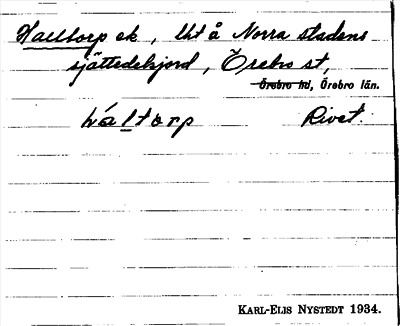 Halltorp ek, Uht å Norra stadens
sjättedelsjord, Örebro st,
Örebro hd, Örebro län.
háltorp Rivet.
KARL-ELIS NYSTEDT 1934.